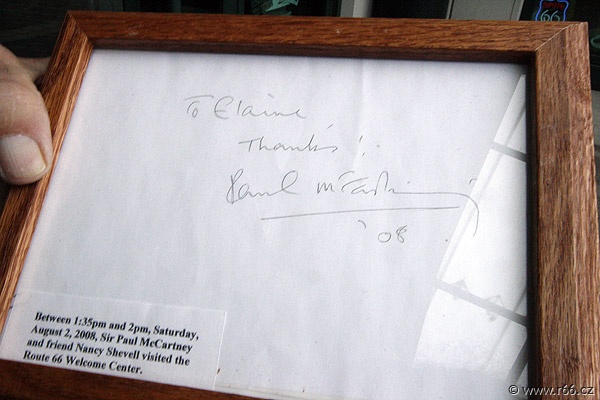 ROUTE
66
To Elaine
Thanks!
Paul McCartney
'08
Between 1:35pm and 2pm, Saturday,
August 2, 2008, Sir Paul McCartney
and friend Nancy Shevell visited the
Route 66 Welcome Center.
© www.r66.cz